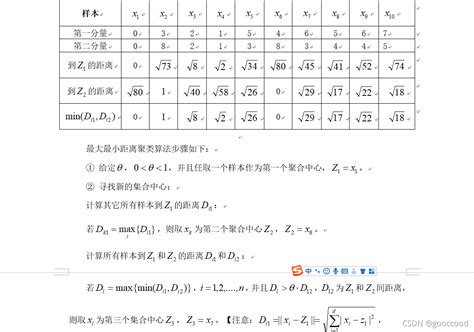 样本 x₁ x₂ x₃ x₄ x₅ x₆ x₇ x₈ x₉ x₁₀
第一分量 0 3 2 1 5 4 6 5 6 7
第二分量 0 8 2 1 3 8 3 4 4 5
到Z₁的距离 0 √73 √8 √2 √34 √80 √45 √41 √52 √74
到Z₂的距离 √80 1 √40 √58 √26 0 √29 √17 √22 √18
min(Dᵢ₁,Dᵢ₂) 0 1 √8 √2 √26 0 √29 √17 √22 √18
最大最小距离聚类算法步骤如下：
① 给定θ，0<θ<1，并且任取一个样本作为第一个聚合中心，Z₁ = x₁。
② 寻找新的集合中心：
计算其它所有样本到Z₁的距离Dᵢ₁：
若Dₖ₁ = max{Dᵢ₁}，则取xₖ为第二个聚合中心Z₂，Z₂ = xₖ。
i
计算所有样本到Z₁和Z₂的距离Dᵢ₁和Dᵢ₂：
中
若Dₗ = max{min(Dᵢ₁,Dᵢ₂)}，i = 1,2,....,n，并且Dₗ > θ·D₁₂，D₁₂为Z₁和Z₂间距离，
则取xₗ为第三个集合中心Z₃，Z₃ = xₗ。【注意：Dᵢ₁ =|| xᵢ − Z₁ ||= √∑|xᵢ − z₁|²，
CSDN @gooccoood